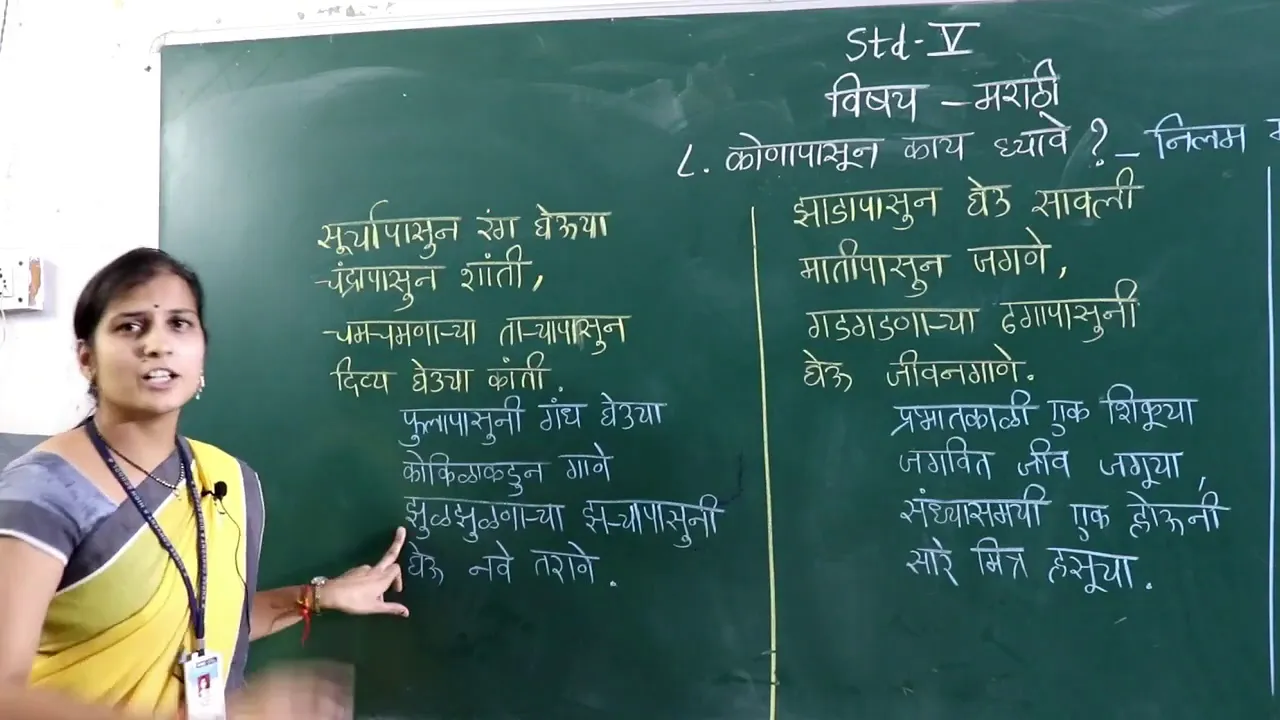 Std-V
विषय - मराठी
८. कोणापासून काय घ्यावे ? - निलम
सूर्यापासुन रंग घेऊया
चंद्रापासुन शांती,
चमचमणाऱ्या ताऱ्यापासुन
दिव्य घेउया कांती.
फुलापासुनी गंध घेउया
कोकिळाकडुन गाणे
झुळझुळणाऱ्या झऱ्यापासुनी
घेऊ नवे तराणे.
झाडापासुन घेउ सावली
मातीपासुन जगणे,
गडगडणाऱ्या ढगापासुनी
घेऊ जीवनगाणे.
प्रभातकाळी एक शिकूया
जगवित जीव जगूया,
संध्यासमयी एक होऊनी
सारे मित्र हसूया.